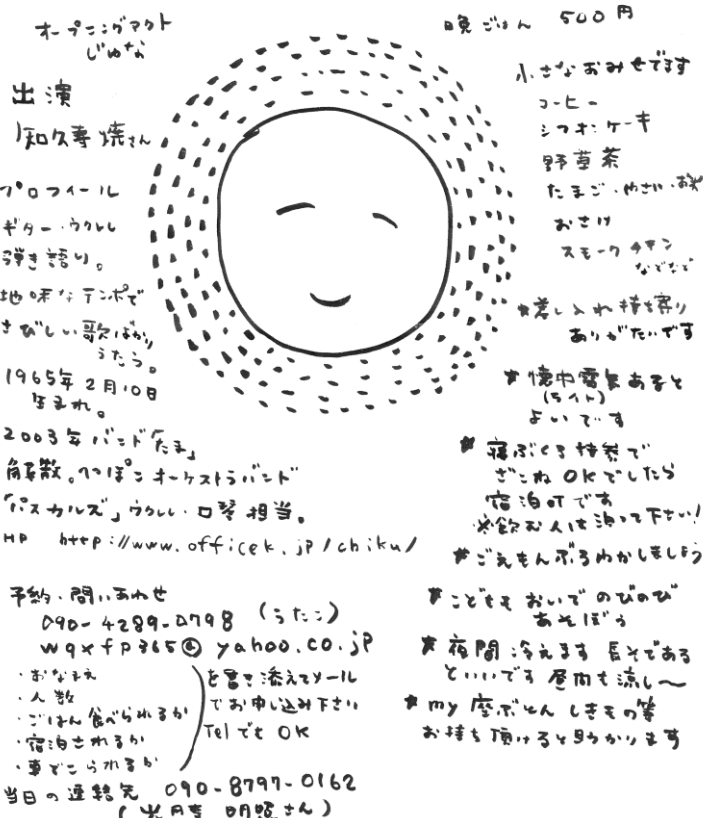 オープニングアクト
じゅな
出演
知久寿焼さん
プロフィール
ギター・ウクレレ
弾き語り。
地味なテンポで
さびしい歌ばかり
うたう。
1965年2月10日
生まれ。
2003年バンド「たま」
解散。つっぽこオーケストラバンド
「パスカルズ」ウクレレ・口琴担当。
HP http://www.officek.jp/chiku/
予約・問いあわせ
090-4289-0798 (うたこ)
wqxfp365@yahoo.co.jp
・おなまえ
・人数
・ごはん食べられるか
・宿泊されるか
・車でこられるか
を書き添えてメール
でお申し込み下さい
Telでも OK
当日の連絡先 090-8797-0162
晩ごはん 500円
小さなおみせでます
コーヒー
シフォンケーキ
野草茶
たまご・やさい・お米
おさけ
スモークチキン
などなど
*差し入れ持ち寄り
ありがたいです
*懐中電気あると
(ライト)
よいです
*寝ぶくろ持参で
ざこね OKでしたら
宿泊可です
※飲む人は泊って下さい!
*ごえもんぶろわかしましょう
*こどももおいで のびのび
あそぼう
*夜間冷えます 長そである
といいです 昼間も涼し〜
*my 座ぶとん しきもの等
お持ち頂けると助かります